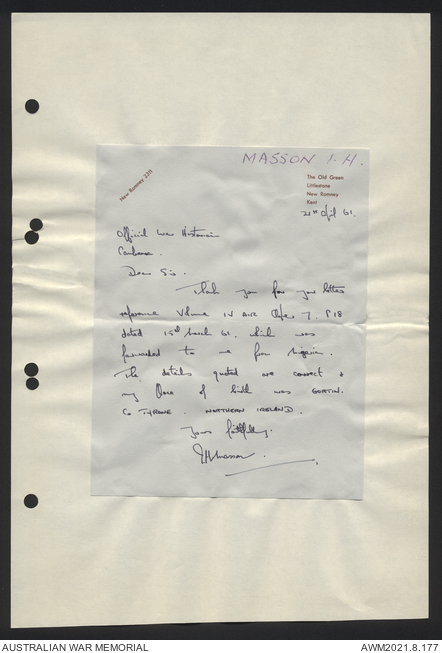 MASSON I.H.
New Romney 2311
The Old Green
Littlestone
New Romney
Kent
21st April 61.
Official War Historian
Canberra.
Dear Sir.
Thank you for your letter
reference Volume IV AIR 7. P18
dated 15th March 61. which was
forwarded to me from Nigeria.
The details quoted are correct &
my Place of birth was GORTIN.
Co TYRONE. NORTHERN IRELAND.
Yours faithfully.
IHMasson.
AUSTRALIAN WAR MEMORIAL
AWM2021.8.177